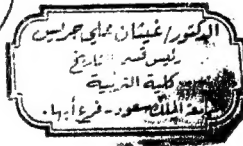 الدكتور/غيثان علي جريس
رئيس قسم التاريخ
كلية التربية
جامعة الملك سعود - فرع أبها.